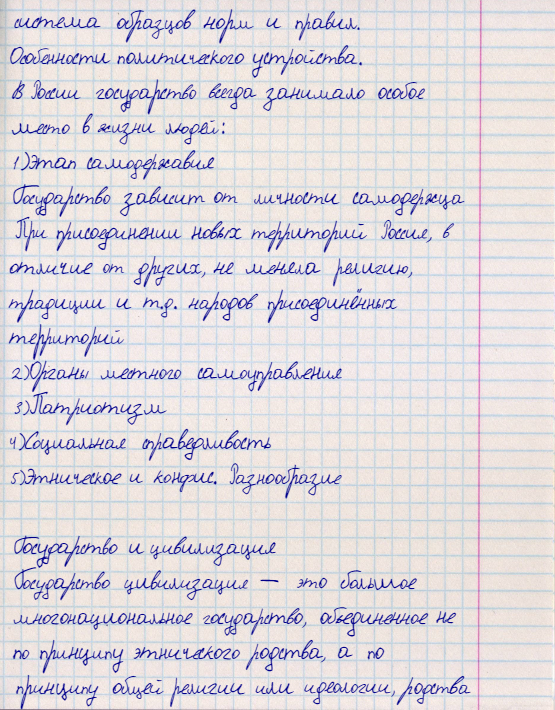 система образцов норм и правил.
Особенности политического устройства.
В России государство всегда занимало особое
место в жизни людей:
1)Этап самодержавия
Государство зависит от личности самодержца
При присоединении новых территорий Россия, в
отличие от других, не меняла религию,
традиции и т.д. народов присоединённых
территорий
2)Органы местного самоуправления
3)Патриотизм
4)Социальная справедливость
5)Этническое и конфис. Разнообразие
Государство и цивилизация
Государство цивилизация — это большое
многонациональное государство, объединенное не
по принципу этнического родства, а по
принципу общей религии или идеологии, родства